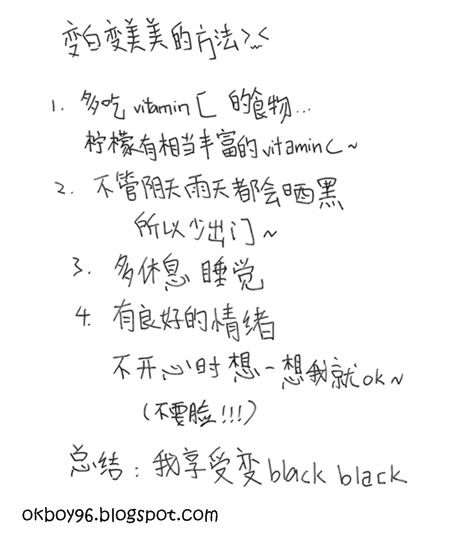 变白变美美的方法>﹏<
1. 多吃 vitamin C 的食物...
柠檬有相当丰富的vitamin C~
2. 不管阴天雨天都会晒黑
所以少出门~
3. 多休息 睡觉
4. 有良好的情绪
不开心时想一想我就ok~
(不要脸!!!)
总结:我享受变black black
okboy96.blogspot.com